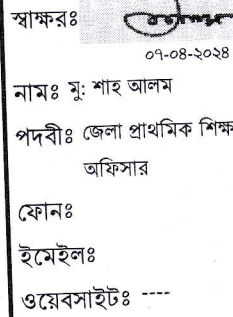 স্বাক্ষরঃ
০৭-০৪-২০২৪
নামঃ মু: শাহ আলম
পদবীঃ জেলা প্রাথমিক শিক্ষ
অফিসার
ফোনঃ
ইমেইলঃ
ওয়েবসাইটঃ ----